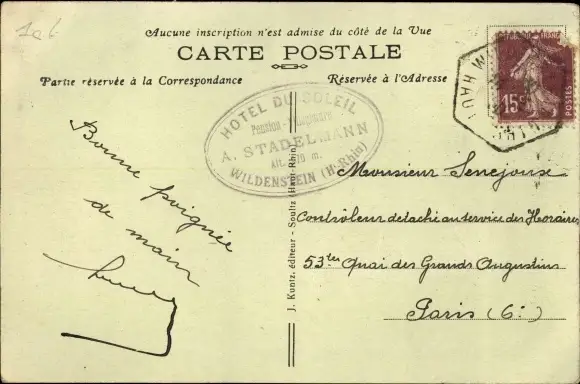 Aucune inscription n'est admise du côté de la Vue
CARTE POSTALE
Partie réservée à la Correspondance
Réservée à l'Adresse
15c
POSTES
HAUT
HOTEL DU SOLEIL
Pension
A. STADELMANN
WILDENSTEIN (H-Rhin)
Bonne poignée
de main
J. Kuntz, éditeur - Soultz (Haut-Rhin)
Monsieur Senejoux
Contrôleur detaché au service des Horaires
53ter Quai des Grands Augustins
Paris (6e)